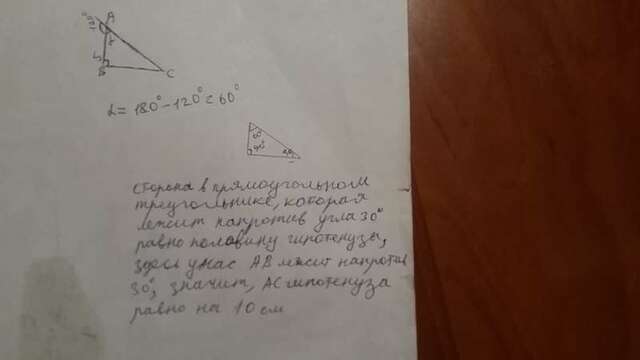 120°
A
5
B
C
α = 180° - 120° = 60°
60°
90°
30°
сторона в прямоугольном
треугольнике, которая
лежит напротив угла 30°
равно половину гипотенузы,
здесь у нас AB лежит напротив
30°, значит, AC гипотенуза
равно на 10 см